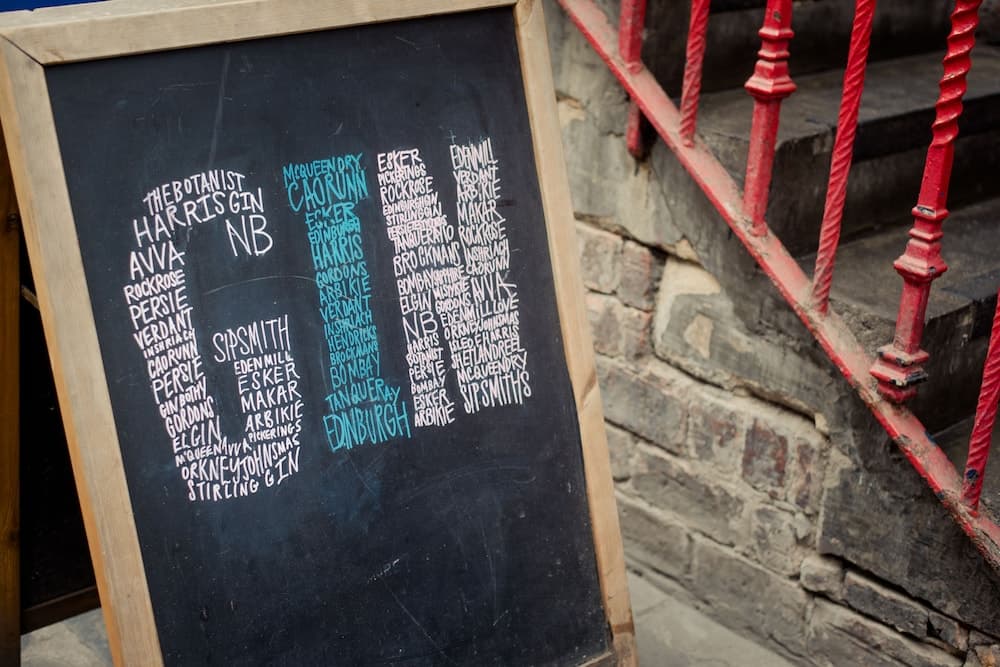 THE BOTANIST
HARRIS GIN
NB
AVVA
ROCKROSE
PERSIE
PERSIE
VERDANT
INSHRIACH
CAORUNN
PERSIE
GIN BOTHY
GORDONS
ELGIN
MCQUEEN
AVVA
ORKNEY JOHNSMAS
STIRLING GIN
SIPSMITH
EDENMILL
ESKER
MAKAR
ARBIKIE
PICKERINGS
MCQUEEN DRY
CAORUNN
ESKER
EDINBURGH
HARRIS
GORDONS
ARBIKIE
VERDANT
INSHRIACH
HENDRICKS
BROCKMANS
BOMBAY
TANQUERAY
EDINBURGH
ESKER
MCKERINGS
ROCKROSE
EDINBURGH GIN
STIRLING GIN
BROCKNANS
ELGIN
NB
HARRIS
BOTANIST
PERSIE
BOMBAY
ESKER
ARBIKIE
EDENMILL
VERDANT
ARBIKIE
MAKAR
ROCKROSE
INSHRIACH
CAORUNN
AVVA
EDENMILL LOVE
ORKNEY JOHNSMAS
ISLE OF HARRIS
SHETLAND REEL
MCQUEEN DRY
SIPSMITHS